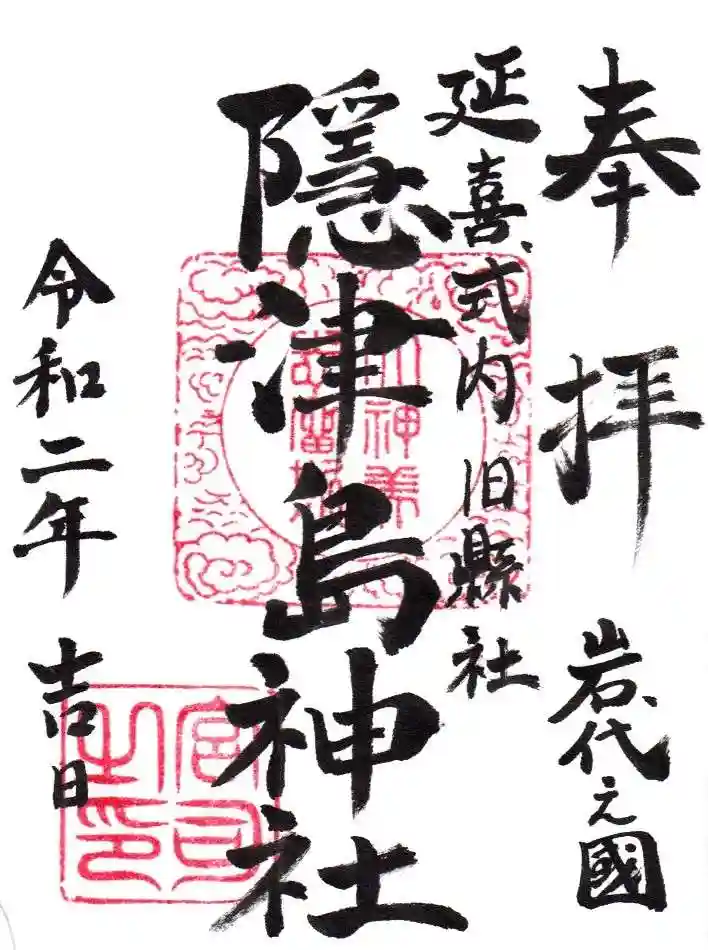 奉拝 岩代之國
延喜式内 旧縣社
隱津島神社
令和二年 吉日
宮司之印